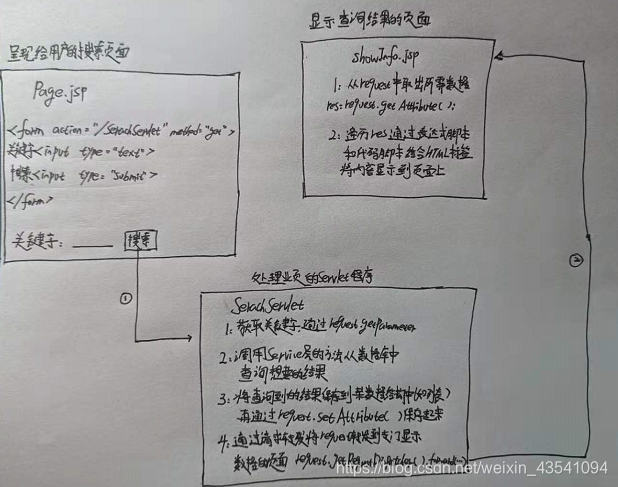 呈现给用户的搜索页面
Page.jsp
<form action="/SerachServlet" method="get">
关键字<input type="text">
搜索<input type="submit">
</form>
关键字：搜索
①
显示查询结果的页面
showInfo.jsp
1：从request中取出所需数据
res=request.getAttribute( );
2：遍历res通过表达式脚本
和代码脚本结合HTML标签
将内容显示到页面上
②
处理业务的Servlet程序
SerachServlet
1：获取关键字,通过request.getParameter
2：调用Service层的方法从数据库中
查询想要的结果
3：将查询到的结果保存到某数据结构中(如列表)
再通过request.setAttribute( )保存起来
4：通过请求转发将request转发到专门显示
数据的页面 forward
https://blog.csdn.net/weixin_43541094